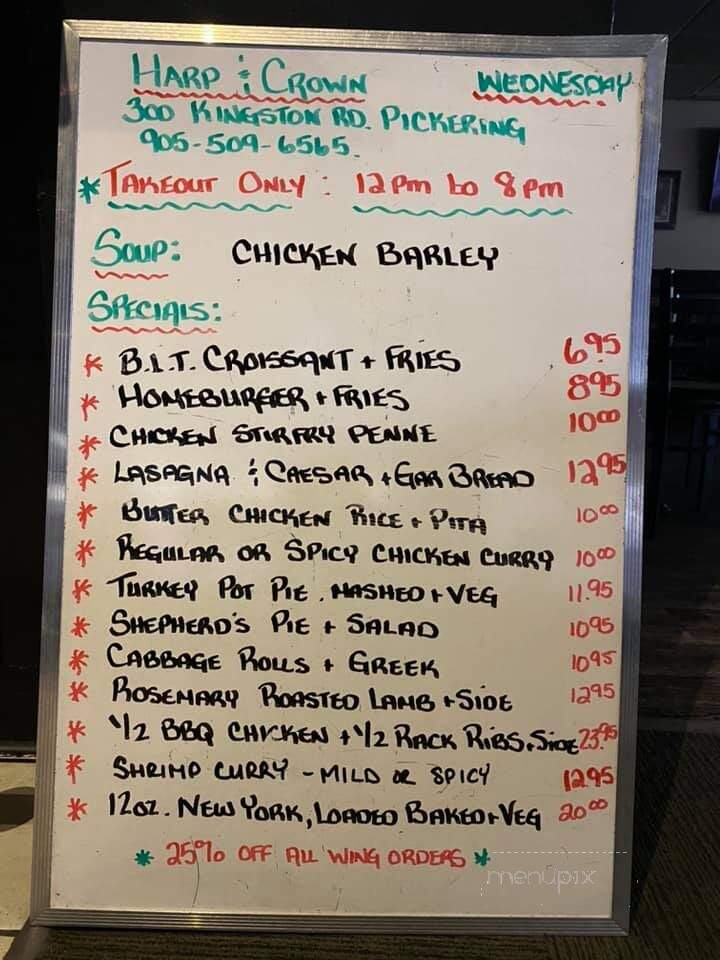 HARP & CROWN WEDNESDAY
300 KINGSTON RD. PICKERING
905-509-6565.
* TAKEOUT ONLY: 12pm to 8pm
SOUP: CHICKEN BARLEY
SPECIALS:
* B.L.T. CROISSANT + FRIES 6.95
* HOMEBURGER + FRIES 8.95
* CHICKEN STIRFRY PENNE 10.00
* LASAGNA & CAESAR + GAR BREAD 12.95
* BUTTER CHICKEN RICE + PITA 10.00
* REGULAR OR SPICY CHICKEN CURRY 10.00
* TURKEY POT PIE. MASHED + VEG 11.95
* SHEPHERD'S PIE + SALAD 10.95
* CABBAGE ROLLS + GREEK 10.95
* ROSEMARY ROASTED LAMB + SIDE 12.95
* 1/2 BBQ CHICKEN + 1/2 RACK RIBS + SIDE 23.95
* SHRIMP CURRY - MILD OR SPICY 12.95
* 12oz. NEW YORK, LOADED BAKED + VEG 20.00
* 25% OFF ALL WING ORDERS *
menupix